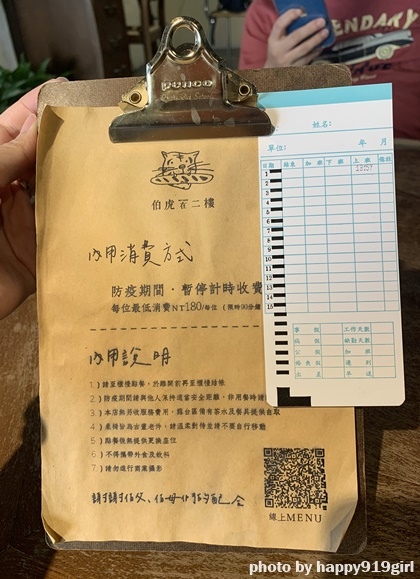 ENDARY
姓名:
單位: 年 月
日期 姓名 加班 下班 上班 備註
1
2
3
4
5
6
7
8
9
10
11
12
13
14
15
事假 工作天數
病假 缺勤天數
公假 加班
特休假 遲到
曠工 早退
伯虎在二樓
內用消費方式
防疫期間・暫停計時收費
每位最低消費NT180/每位 (限時90分鐘
內用說明
1) 請至櫃檯點餐，於離開前再至櫃檯結帳
2) 防疫期間請與他人保持適當安全距離，非用餐時請
3) 本店無另收服務費用，縣台區備有茶水及餐具提供自取
4) 桌椅皆為古董老件，請溫柔對待並請不要自行移動
5) 點餐後無提供更換座位
6) 不得攜帶外食及飲料
7) 請勿進行商業攝影
謝謝伯父、伯母们的配合
線上MENU
photo by happy919girl